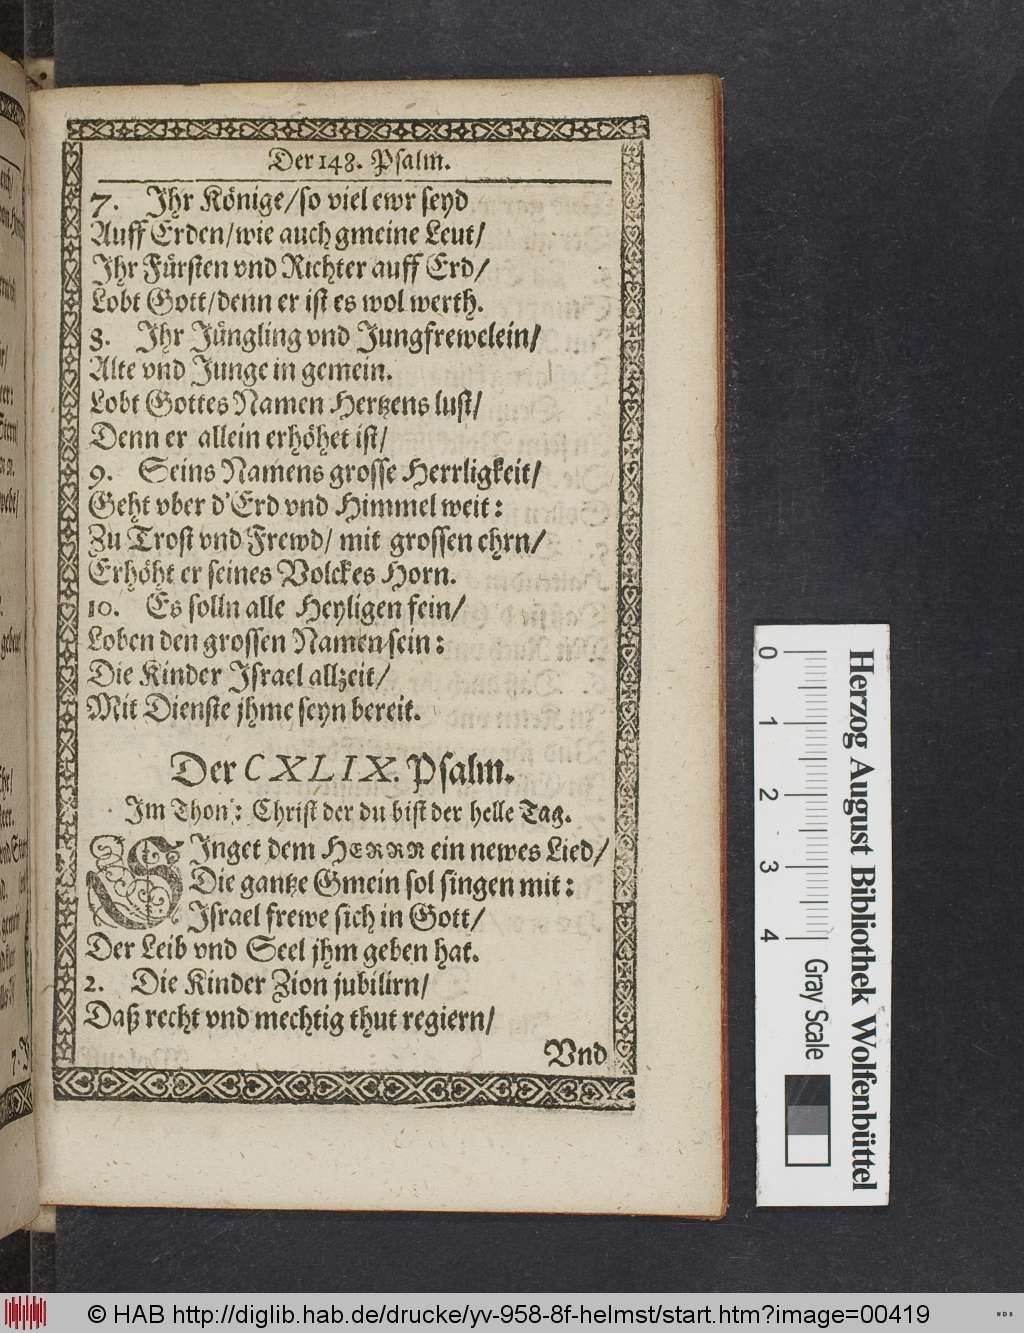 Der 148. Psalm.
7. Ihr Könige/so viel ewr seyd
Auff Erden/wie auch gmeine Leut/
Ihr Fürsten vnd Richter auff Erd/
Lobt Gott/denn er ist es wol werth.
8. Ihr Jüngling vnd Jungfrewelein/
Alte vnd Junge in gemein.
Lobt Gottes Namen Hertzens lust/
Denn er allein erhöhet ist/
9. Seins Namens grosse Herrligkeit/
Geht vber d'Erd vnd Himmel weit:
Zu Trost vnd Frewd/ mit grossen ehrn/
Erhöht er seines Volckes Horn.
10. Es solln alle Heyligen fein/
Loben den grossen Namen sein:
Die Kinder Israel allzeit/
Mit Dienste jhme seyn bereit.
Der CXLIX. Psalm.
Im Thon: Christ der du bist der helle Tag.
SInget dem HERRN ein newes Lied/
Die gantze Gmein sol singen mit:
Israel frewe sich in Gott/
Der Leib vnd Seel jhm geben hat.
2. Die Kinder Zion jubilirn/
Daß recht vnd mechtig thut regiern/
Vnd
0 1 2 3 4
Gray Scale
Herzog August Bibliothek Wolfenbüttel
© HAB http://diglib.hab.de/drucke/yv-958-8f-helmst/start.htm?image=00419